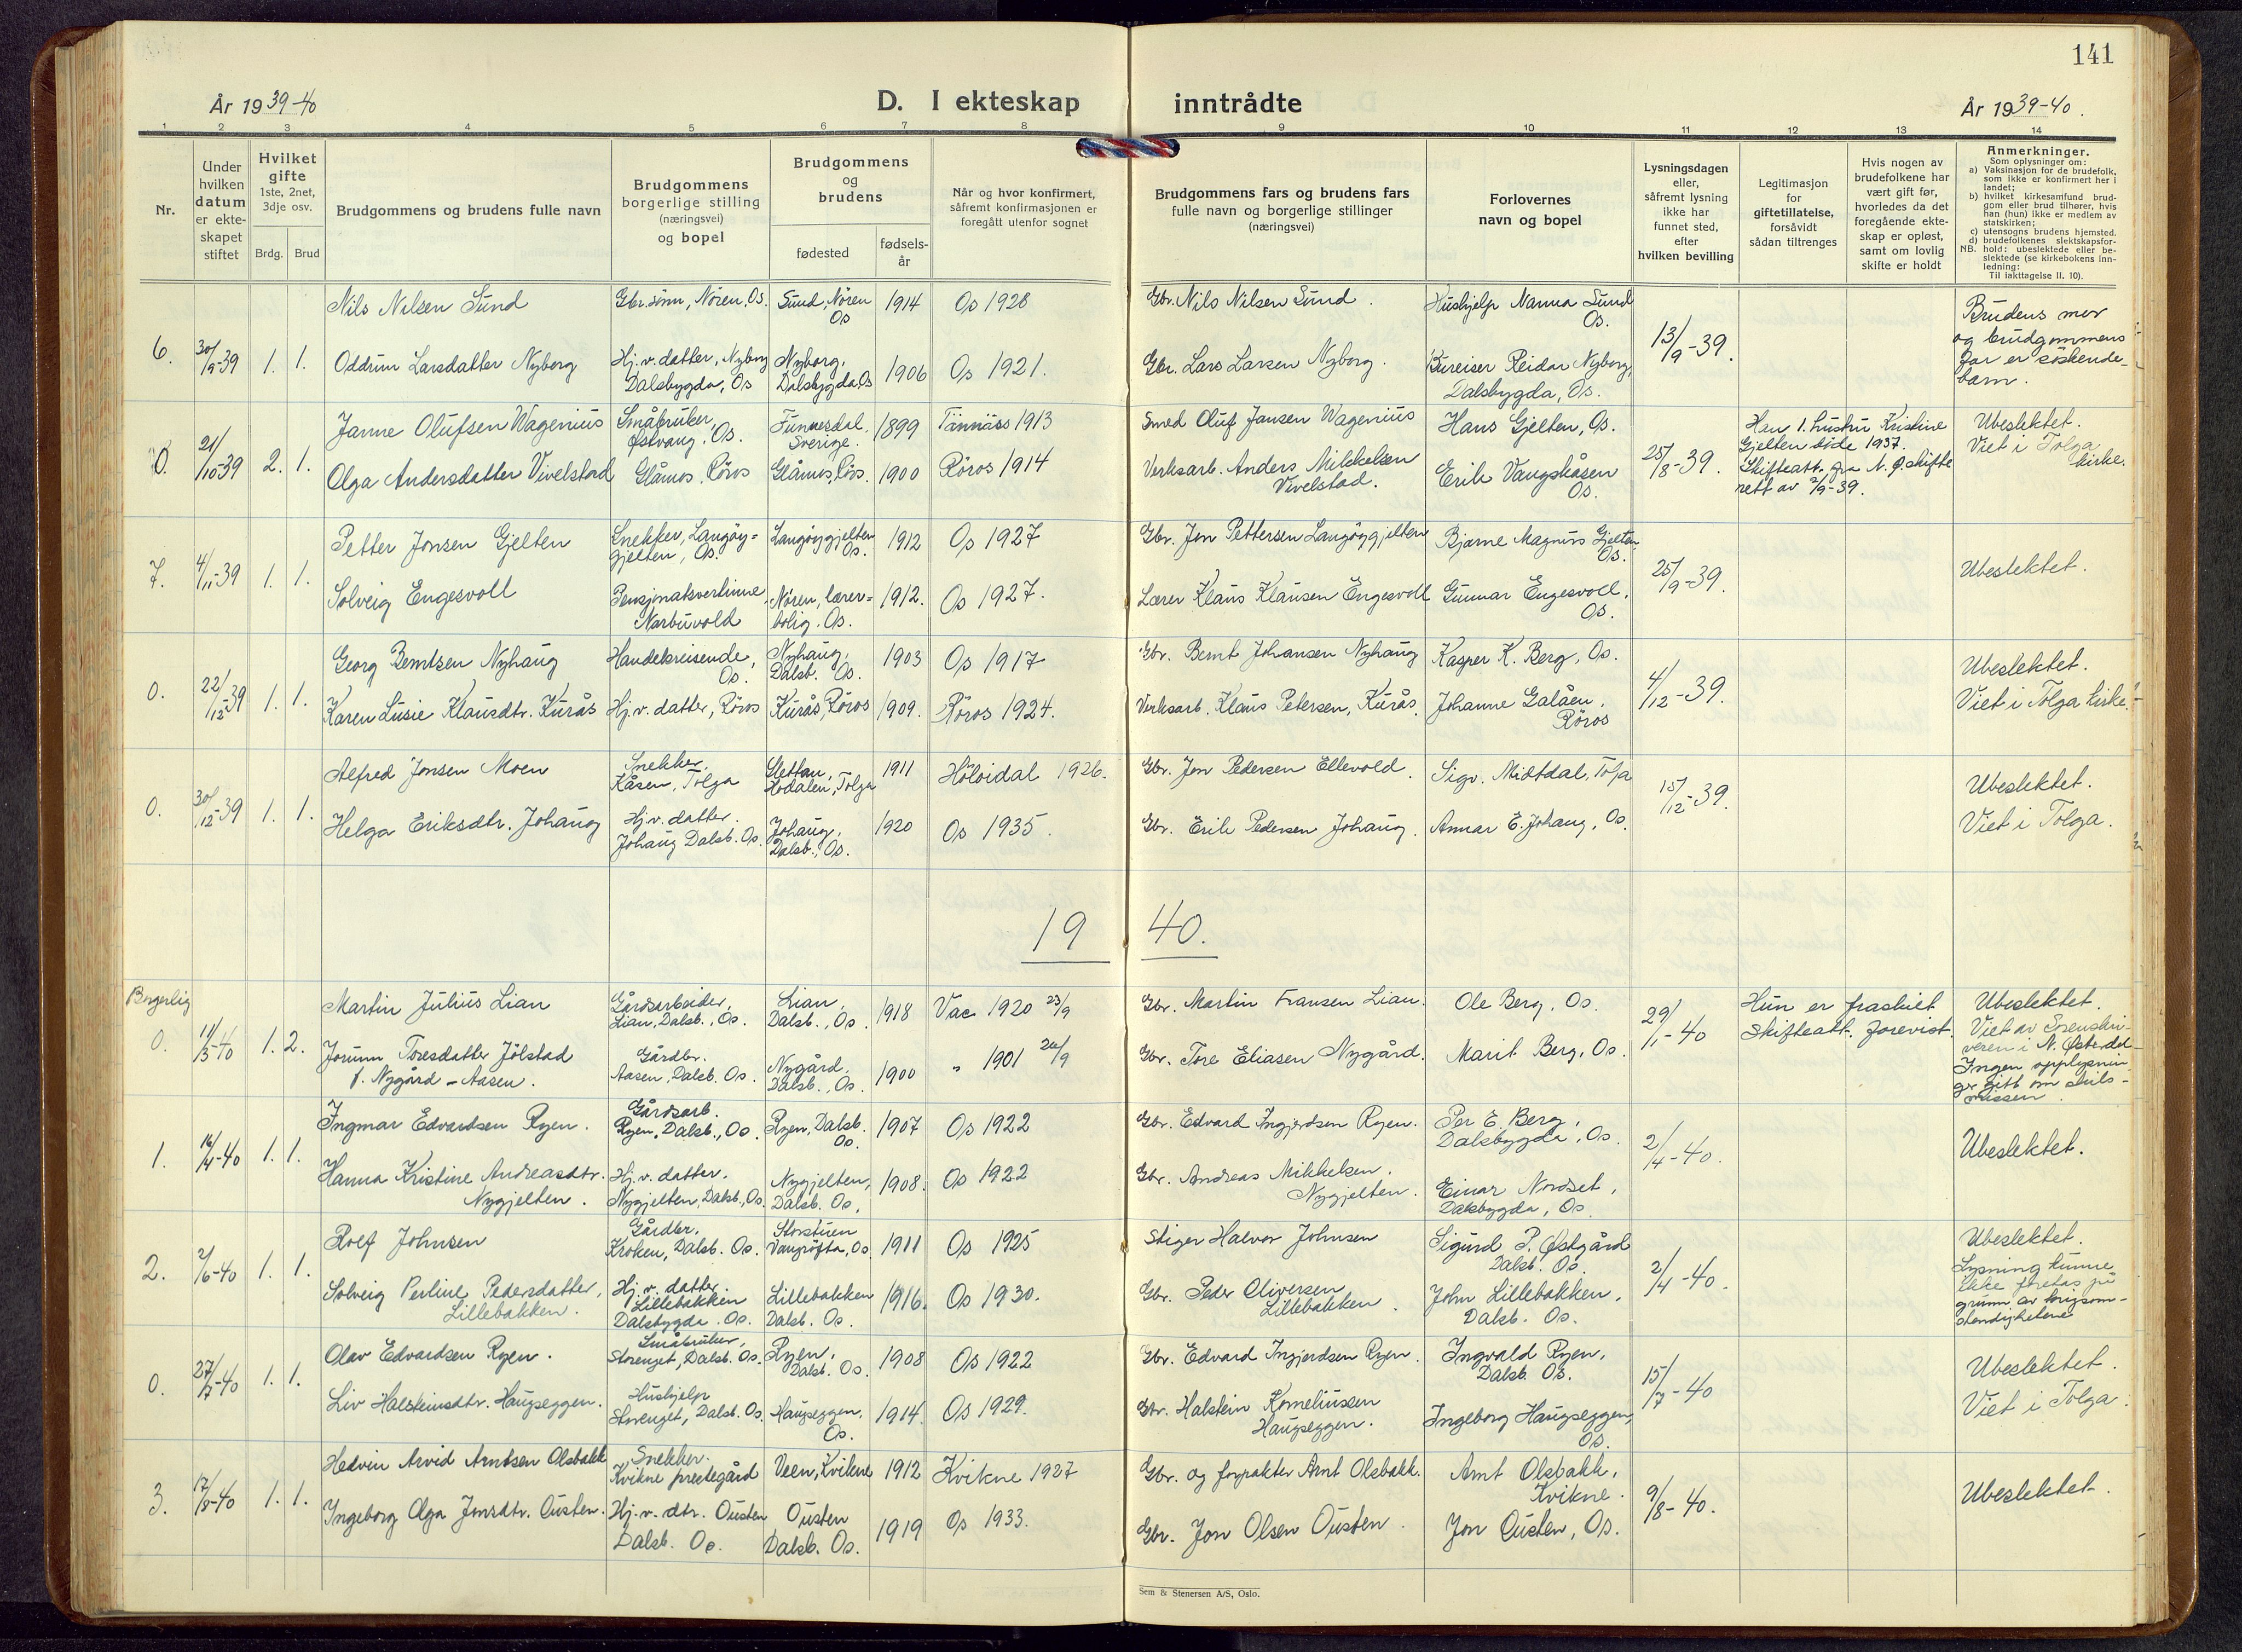 141
År 1939-40
D. I ekteskap inntrådte
År 1939-40.
1 2 3 4 5 6 7 8 9 10 11 12 13 14
Nr.
Under
hvilken
datum
er ekte-
skapet
stiftet
Hvilket
gifte
1ste, 2net,
3dje osv.
Brdg. Brud
Brudgommens og brudens fulle navn
Brudgommens
borgerlige stilling
(næringsvei)
og bopel
Brudgommens
og
brudens
fødested
fødsels-
år
Når og hvor konfirmert,
såfremt konfirmasjonen er
foregått utenfor sognet
Brudgommens fars og brudens fars
fulle navn og borgerlige stillinger
(næringsvei)
Forlovernes
navn og bopel
Lysningsdagen
eller,
såfremt lysning
ikke har
funnet sted,
efter
hvilken bevilling
Legitimasjon
for
giftetillatelse,
forsåvidt
sådan tiltrenges
Hvis nogen av
brudefolkene har
vært gift før,
hvorledes da det
foregående ekte-
skap er opløst,
samt om lovlig
skifte er holdt
Anmerkninger.
Som oplysninger om:
a) Vaksinasjon for de brudefolk,
som ikke er konfirmert her i
landet;
b) hvilket kirkesamfund brud-
gom eller brud tilhører, hvis
han (hun) ikke er medlem av
statskirken;
c) utensogns brudens hjemsted.
d) brudefolkenes slektskapsfor-
NB. hold: ubeslektede eller be-
slektede (se kirkebokens inn-
ledning:
Til iakttagelse II. 10).
6. 30/9-39 1. 1.
Nils Nilsen Sund
Gbr.sønn, Nøren, Os.
Sund, Nøren
Os
1914
Os 1928
Gbr. Nils Nilsen Sund.
Hushjelp Nanna Sund
Os.
13/9-39.
Brudens mor
og brudgommens
far er søskende-
barn.
Oddrun Larsdatter Nyborg
Hj.v. datter, Nyborg
Dalsbygda, Os
Nyborg,
Dalsbygda, Os
1906
Os 1921.
Gbr. Lars Larsen Nyborg.
Bureiser Reidar Nyborg,
Dalsbygda, Os.
0. 21/10-39 2. 1.
Janne Olufsen Wagenius
Småbruker,
Østvang, Os.
Funnesdal.
Sverige.
1899
Tännäss 1913
Smed Oluf Jansen Wagenius
Hans Gjelten, Os.
25/8-39.
Han 1. hustru Kristine
Gjelten døde 1937.
Skifteatt. fra N. Ø. skifte
rett av 2/9-39.
Ubeslektet.
Viet i Tolga
kirke.
Olga Andersdatter Vivelstad
Glåmos, Röros
Glåmos, Rös.
1900
Röros 1914
Verksarb. Anders Mikkelsen
Vivelstad.
Erik Vangskåsen
Os.
7. 4/11-39 1. 1.
Petter Jonsen Gjelten
Snekker, Langöy-
gjelten, Os.
Langöygjelten
Os.
1912
Os 1927
Gbr. Jon Pettersen Langöygjelten
Bjarne Magnus Gjelten
Os.
25/9-39.
Ubeslektet.
Solveig Engesvoll
Pensjonatsvertinne
Narbuvold
Nøren, lærer-
bolig. Os.
1912.
Os 1927.
Lærer Klaus Klausen Engesvoll
Gunnar Engesvoll,
Os.
0. 22/12-39 1. 1.
Georg Berntsen Nyhaug
Handelsreisende,
Os.
Nyhaug,
Dalsb. Os.
1903
Os 1917
Gbr. Bernt Johansen Nyhaug
Kasper K. Berg, Os.
4/12-39.
Ubeslektet.
Viet i Tolga kirke.
Karen Lusie Klausdtr. Kurås
Hj.v. datter, Röros
Kurås, Röros
1909.
Röros 1924.
Verksarb. Klaus Petersen, Kurås.
Johanne Galåen,
Röros
0. 30/12-39 1. 1.
Alfred Jonsen Moen
Snekker.
Kåsen, Tolga
Slettan,
Hodalen, Tolga
1911
Höloidal 1926.
Gbr. Jon Pedersen Ellevold.
Sigv. Midtdal, Tolga
15/12-39.
Ubeslektet.
Viet i Tolga.
Helga Eriksdtr. Johaug
Hj.v. datter.
Johaug Dalsb. Os.
Johaug,
Dalsb., Os.
1920
Os 1935.
Gbr. Erik Pedersen Johaug.
Annar E. Johaug, Os.
1940.
Borgerlig
0. 11/3-40 1. 2.
Martin Julius Lian
Gårdsarbeider,
Lian, Dalsb., Os.
Lian,
Dalsb., Os
1918
Vac 1920 23/9
Gbr. Martin Fransen Lian.
Ole Berg, Os.
29/1-40
Hun er fraskilt
Skifteatt. forevist.
Ubeslektet.
Viet av Sorenskri-
veren i N. Østerdal
Ingen opplysnin-
ger gitt om skils-
missen.
Jorunn Toresdatter Jölstad
f. Nygård - Aasen.
Gårdbr.
Aasen, Dalsb. Os.
Nygård,
Dalsb., Os.
1900
" 1901 26/9
Gbr. Tore Eliasen Nygård.
Marit Berg, Os.
1. 16/4-40 1. 1.
Ingmar Edvardsen Ryen.
Gårdsarb.
Ryen, Dalsb., Os.
Ryen, Dalsb.
Os.
1907
Os 1922
Gbr. Edvard Ingjerdsen Ryen.
Per E. Berg,
Dalsbygda, Os.
2/4-40.
Ubeslektet.
Hanna Kristine Andreasdtr.
Nygjelten.
Hj.v. datter.
Nygjelten, Dalsb, Os.
Nygjelten,
Dalsb. Os.
1908.
Os 1922
Gbr. Andreas Mikkelsen.
Nygjelten.
Einar Nordset,
Dalsbygda, Os.
2. 2/6-40 1. 1.
Rolf Johnsen
Gårdbr.
Kroken, Dalsb. Os.
Storstuen
Vangröfta, Os
1911
Os 1925
Stiger Halvor Johnsen
Sigurd P. Østgård
Dalsb. Os.
2/4-40.
Ubeslektet.
Lysning kunne
ikke foretas på
grunn av krigsom-
stendighetene
Solveig Perline Pedersdatter,
Lillebakken.
Hj.v. datter,
Lillebakken
Dalsbygda. Os.
Lillebakken
Dalsb. Os.
1916.
Os 1930.
Gbr. Peder Oliversen
Lillebakken.
John Lillebakken,
Dalsb. Os.
0. 27/7-40 1. 1.
Olav Edvardsen Ryen.
Småbruker,
Storenget, Dalsb. Os.
Ryen,
Dalsb. Os.
1908
Os 1922
Gbr. Edvard Ingjerdsen Ryen.
Ingvald Ryen,
Dalsb. Os.
15/7-40
Ubeslektet.
Viet i Tolga.
Liv Halsteinsdtr. Haugseggen.
Hushjelp
Storenget, Dalsb. Os.
Haugseggen,
Os.
1914.
Os 1929.
Gbr. Halstein Korneliussen
Haugseggen.
Ingeborg Haugseggen,
Os.
3. 17/8-40 1. 1.
Hedvin Arvid Arntsen Olsbakk
Snekker.
Kvikne prestegård
Veen, Kvikne
1912
Kvikne 1927
Gbr. og forpakter Arnt Olsbakk.
Arnt Olsbakk,
Kvikne.
9/8-40.
Ubeslektet.
Ingeborg Olga Jonsdtr. Ousten.
Hj.v. dtr. Ousten
Dalsb. Os.
Ousten
Dalsb. Os.
1919
Os 1933.
Gbr. Jon Olsen Ousten.
Jon Ousten, Os.
Sem & Stenersen A/S, Oslo.